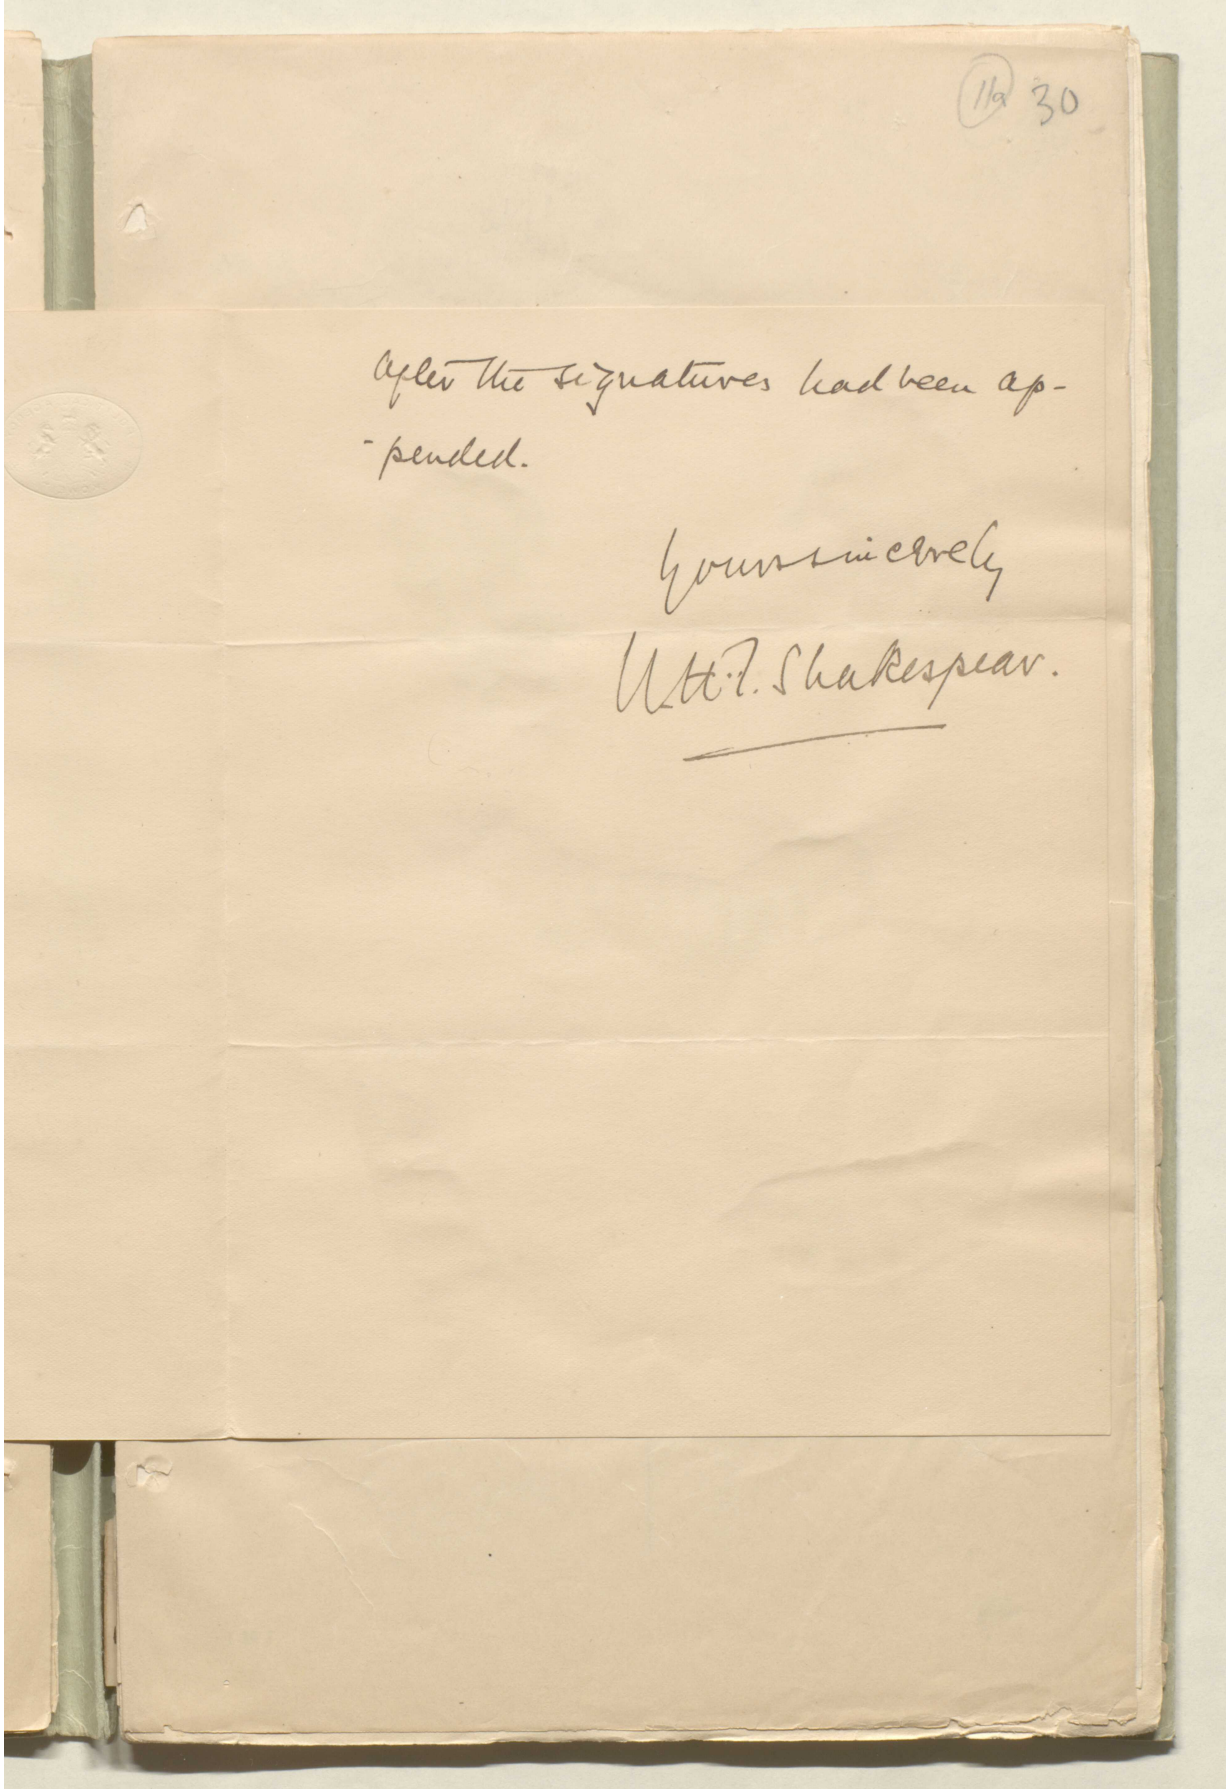 11a 30
after the signatures had been ap-
-pended.
Yours sincerely
W.H.I. Shakespear.